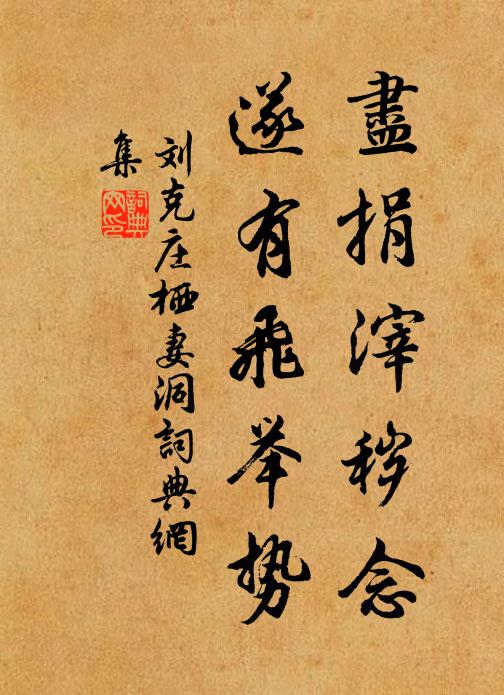 盡捐滓秽念
遂有飛举势
刘克庄栖妻洞詞典網
集
詞典網印